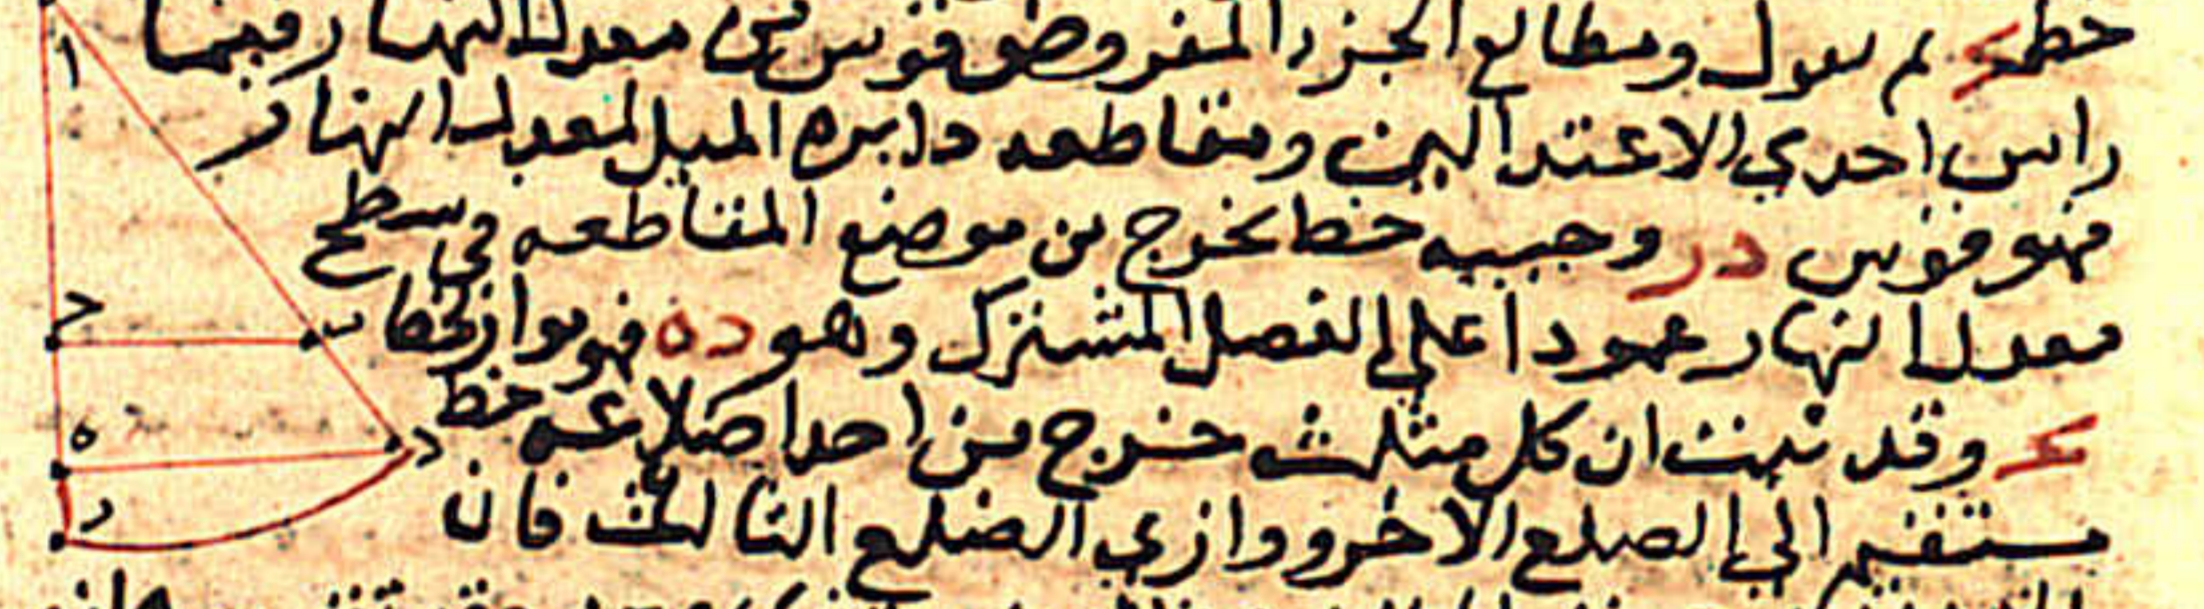 خط حـ ثم نقول ومطالع الجزء المفروض قوس من معدل النهار فيما
راس احدي الاعتدالين ومقاطعه دايره الميل لمعدل النهار
فهو قوس در وجيبه خط يخرج من موضع المقاطعه في سطح
معدل النهار عمودا علي الفصل المشترك وهو ده فهو مواز لخط
وقد تبين ان كل مثلث خرج من احد اضلاعه خط
مستقيم الي الضلع الاخر ووازي الضلع الثالث فان
ا
ح
ب
ه
د
ر